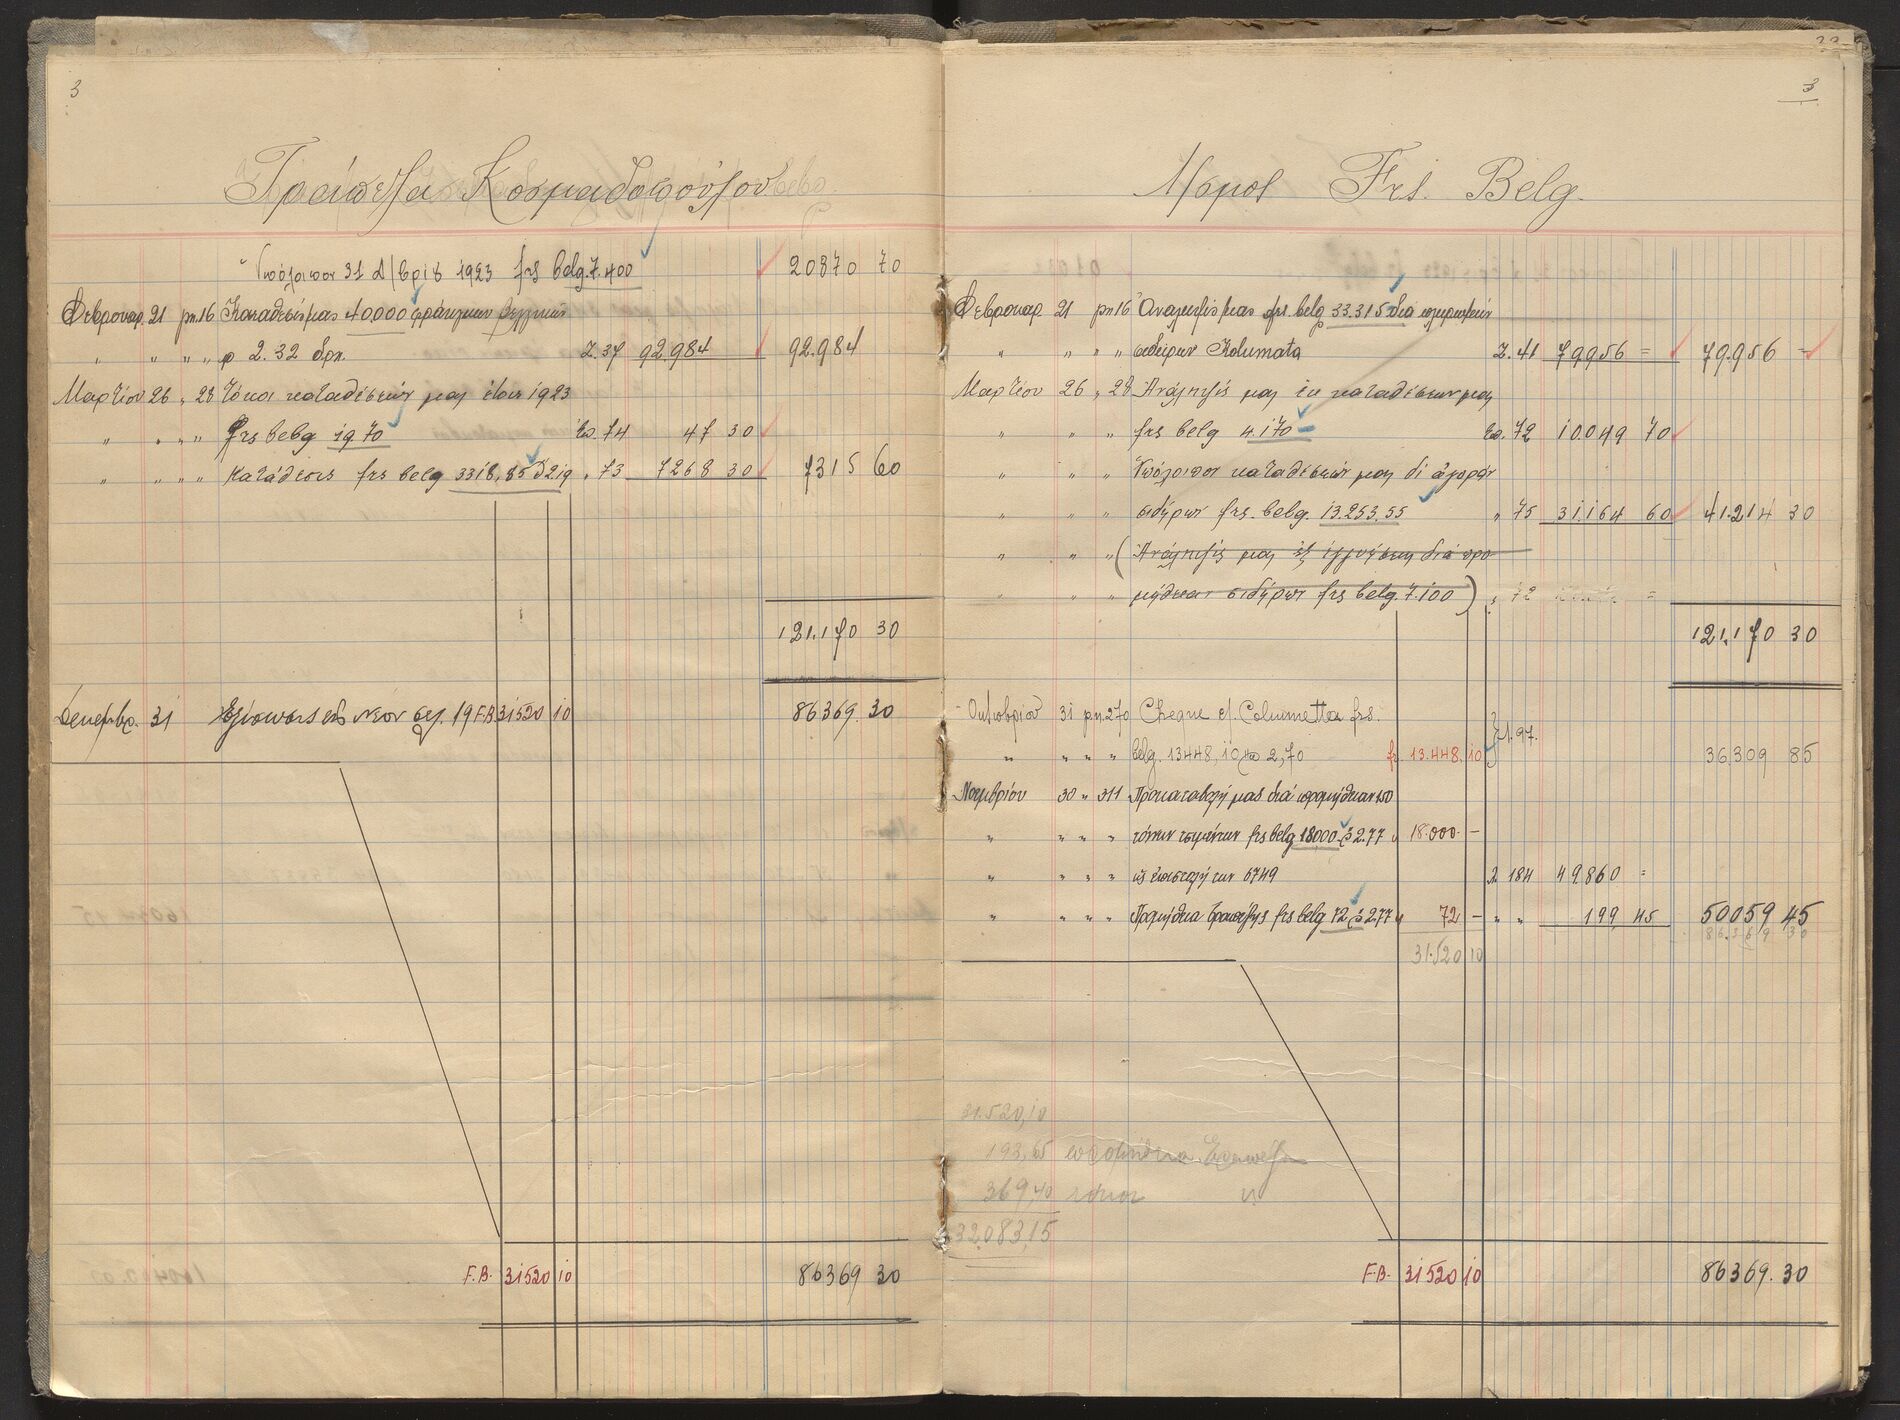 3
Τράπεζα Κοσμαδοπούλου
Υπόλοιπον 31 Δ/βρίου 1923 frs belg. 7.400 20870 70
Φεβρουαρ. 21 pn.16 Κατάθεσίς μας 40.000 φράγκων βελγικών
" " " " p 2.32 δρχ. Σ. 37 92.984 92.984
Μαρτίου 26 " 28 Τόκοι καταθέσεών μας έτους 1923
" " " " frs belg 19.70 Σσ. 74 47 30
" " " " Κατάθεσις frs belg 3318,85 2.19 " 73 7268 30 7315 60
121.170 30
Δεκεμβρ. 31 Εξίσωσις εις νέον σελ. 19 F.B. 31520 10 86369. 30
F.B. 31520 10 86369 30
3
Λ/σμος Frs. Belg.
Φεβρουαρ. 21 pn 16 Ανάληψίς μας frs. belg 33.315 δια πληρωμήν
" " " " σιδήρων Kolumata Σ. 41 79956 = 79.956 =
Μαρτίου 26 " 28 Ανάληψίς μας εκ καταθέσεων μας
" " " frs belg 4.170 Σσ. 72 10.049 70
" " " Υπόλοιπον καταθέσεών μας δι' αγοράν
" " " σιδήρων frs. belg. 13.253.55 " 75 31.164 60 41.214 30
" " " ( Ανάληψίς μας εξ εγγυήσεως διά προ-
" " " μήθειαν σιδήρων frs belg. 7.100 ) " 72 =
121.170 30
Οκτωβρίου 31 pn.270 Cheque εί. Columetta frs.
" " " " belg. 13448,10 2,70 fr. 13.448. 10 Σ. 97. 36.309 85
Νοεμβρίου 30 " 311 Προκαταβολή μας διά προμήθειαν 150
" " " " τόννων τσιμέντων frs belg 18000 2.77 " 18.000. -
" " " " ως επιστολή των 6749 Σ. 184 49.860 =
" " " " Προμήθεια Τραπέζης frs belg 72 2.77 " 72 - " " 199 45 50059 45
86369 30
31.520 10
31.520,10
193,65 προμήθεια Τραπέζης
369,40 τόκοι "
32.083,15
F.B. 31520 10 86369. 30